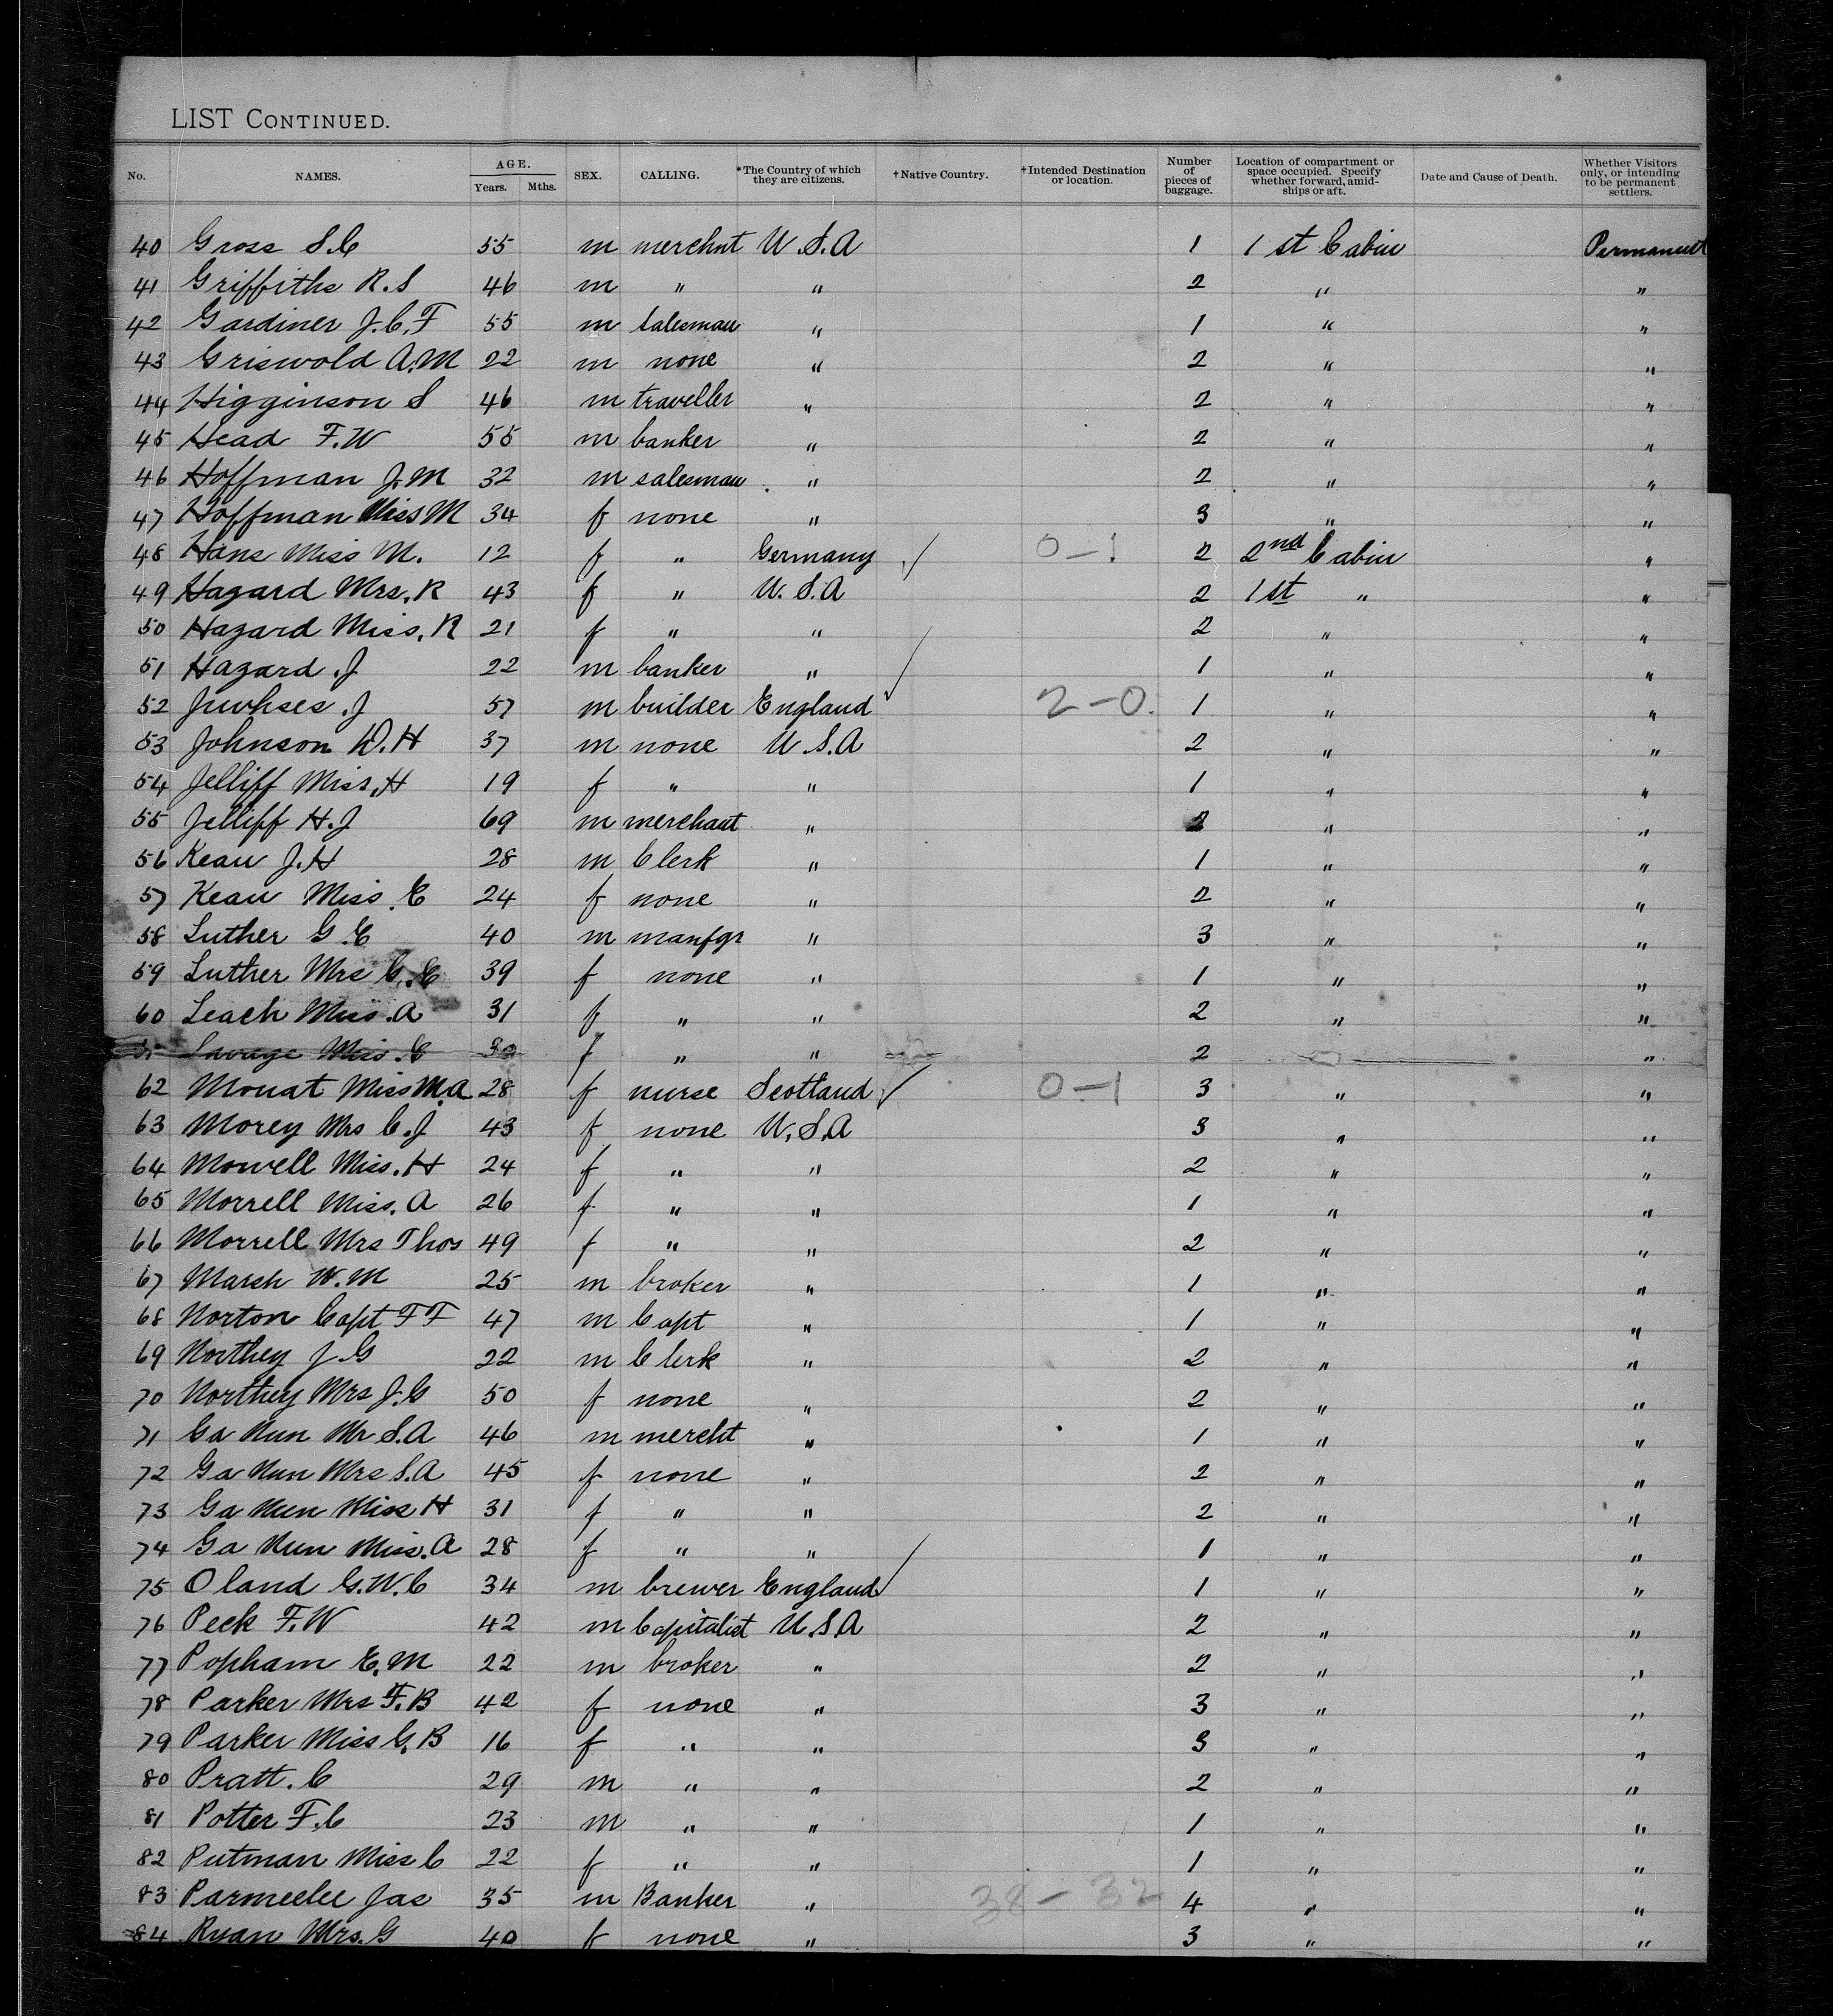 LIST CONTINUED.
No. NAMES. AGE. Years. Mths. SEX. CALLING. *The Country of which they are citizens. †Native Country. †Intended Destination or location. Number of pieces of baggage. Location of compartment or space occupied. Specify whether forward, amidships or aft. Date and Cause of Death. Whether Visitors only, or intending to be permanent settlers.
40 Gross S.C 55 m merchnt U.S.A 1 1st Cabin Permanent
41 Griffiths R.S 46 m " " 2 " "
42 Gardiner J.C.F 55 m salesman " 1 " "
43 Griswold A.M 22 m none " 2 " "
44 Higginson S 46 m traveller " 2 " "
45 Head F.W 55 m banker " 2 " "
46 Hoffman J.M 32 m salesman " 2 " "
47 Hoffman Miss M 34 f none " 3 " "
48 Hans Miss M. 12 f " Germany ✓ 0-1 2 2nd Cabin "
49 Hazard Mrs. R 43 f " U.S.A 2 1st " "
50 Hazard Miss. R 21 f " " 2 " "
51 Hazard .J 22 m banker " ✓ 1 " "
52 .J 57 m builder England 2-0. 1 " "
53 Johnson D.H 37 m none U.S.A 2 " "
54 Jelliff Miss, H 19 f " " 1 " "
55 Jelliff H.J 69 m merchant " 2 " "
56 Kean J.H 28 m Clerk " 1 " "
57 Kean Miss. E 24 f none " 2 " "
58 Luther G.E 40 m manfgr " 3 " "
59 Luther Mrs G.E 39 f none " 1 " "
60 Leach Miss. A 31 f " " 2 " "
Savage Miss. E 30 f " " 2 "
62 Mouat Miss M.A 28 f nurse Scotland ✓ 0-1 3 " "
63 Morey Mrs C.J 43 f none U.S.A 3 " "
64 Mowell Miss. H 24 f " " 2 " "
65 Morrell Miss. A 26 f " " 1 " "
66 Morrell Mrs Thos 49 f " " 2 " "
67 Marsh W.M 25 m broker " 1 " "
68 Norton Capt F F 47 m Capt " 1 " "
69 Northey J.G 22 m Clerk " 2 " "
70 Northey Mrs J.G 50 f none " 2 " "
71 Ga Nun Mr S.A 46 m mercht " 1 " "
72 Ga Nun Mrs S.A 45 f none " 2 " "
73 Ga Nun Miss H 31 f " " 2 " "
74 Ga Nun Miss. A 28 f " " 1 " "
75 Oland G.W.C 34 m brewer England ✓ 1 " "
76 Peck F.W 42 m Capitalist U.S.A 2 " "
77 Popham E.M 22 m broker " 2 " "
78 Parker Mrs F.B 42 f none " 3 " "
79 Parker Miss G.B 16 f " " 3 " "
80 Pratt. C 29 m " " 2 " "
81 Potter F.C 23 m " " 1 " "
82 Putman Miss C 22 f " " 1 " "
83 Parmeelee Jas 35 m Banker " 38-32 4 " "
84 Ryan Mrs. G 40 f none " 3 " "